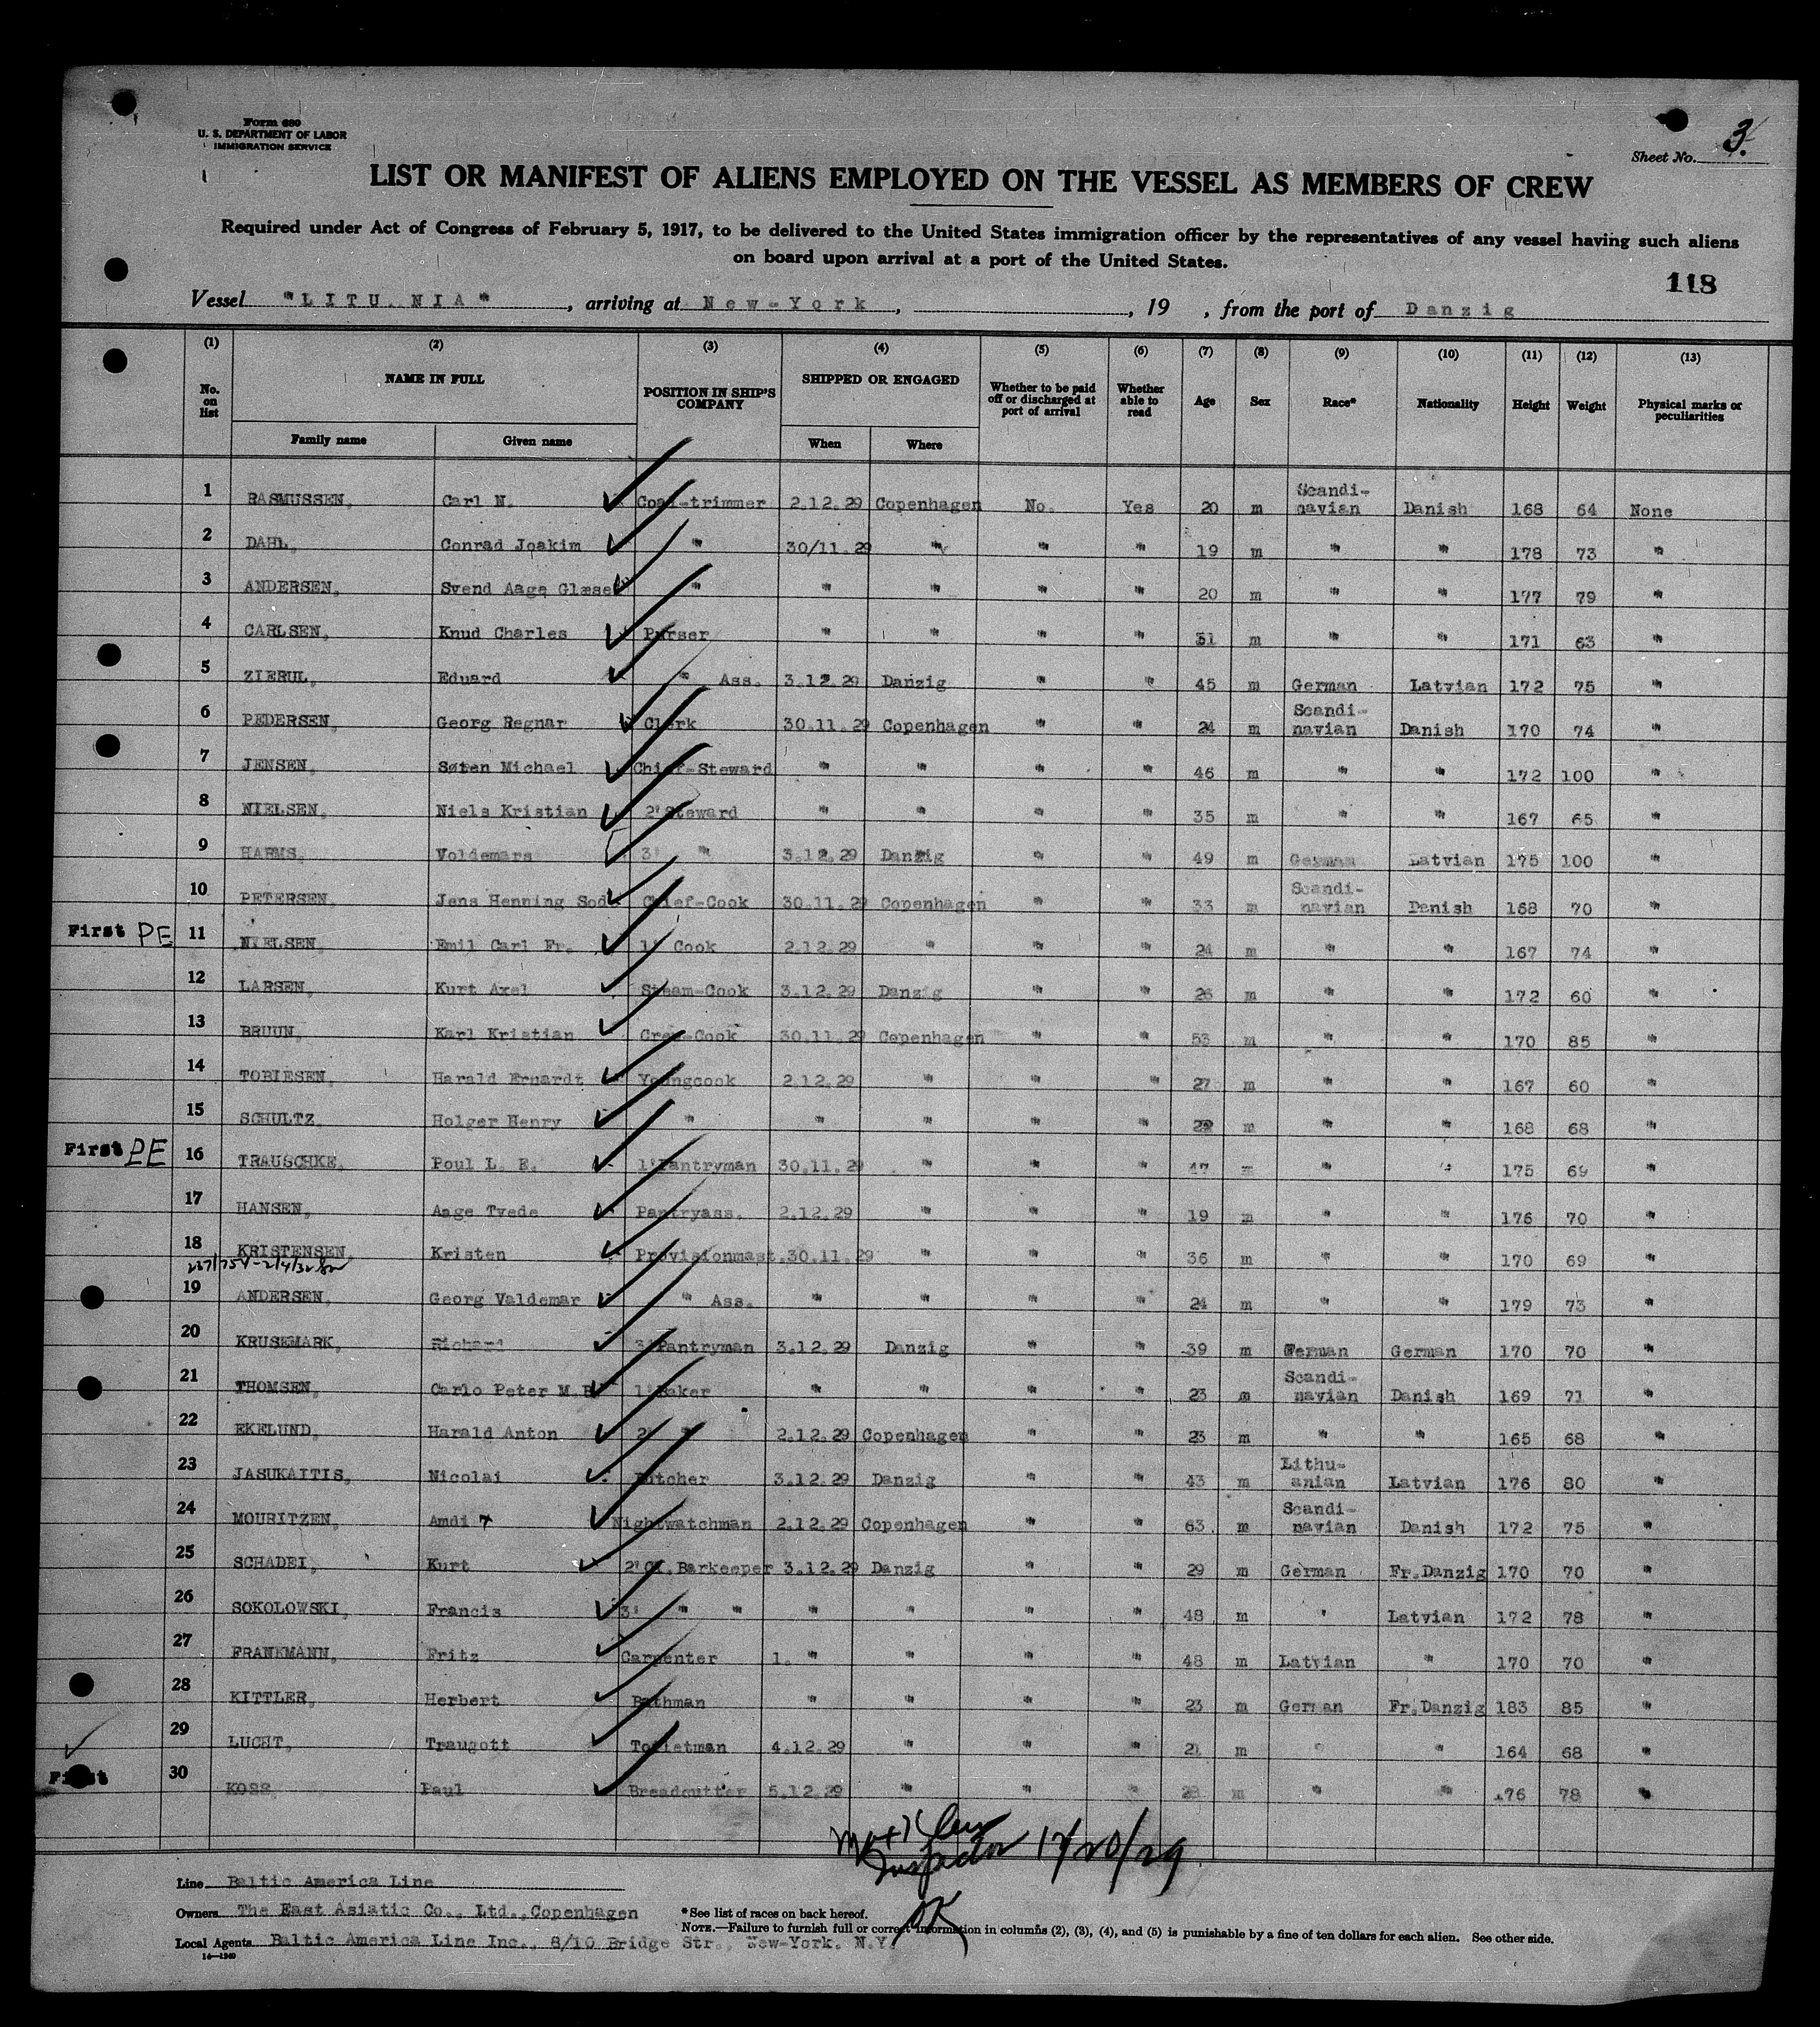 Form 680
U. S. DEPARTMENT OF LABOR
IMMIGRATION SERVICE
Sheet No. 3.
LIST OR MANIFEST OF ALIENS EMPLOYED ON THE VESSEL AS MEMBERS OF CREW
Required under Act of Congress of February 5, 1917, to be delivered to the United States immigration officer by the representatives of any vessel having such aliens
on board upon arrival at a port of the United States.
118
Vessel "LITU NIA", arriving at New-York, , 19 , from the port of Danzig
(1) (2) (3) (4) (5) (6) (7) (8) (9) (10) (11) (12) (13)
No. on list NAME IN FULL POSITION IN SHIP'S COMPANY SHIPPED OR ENGAGED Whether to be paid off or discharged at port of arrival Whether able to read Age Sex Race* Nationality Height Weight Physical marks or peculiarities
Family name Given name When Where
1 RASMUSSEN, Carl N. Coal-trimmer 2.12.29 Copenhagen No. Yes 20 m Scandi-navian Danish 168 64 None
2 DAHL, Conrad Joakim " 30/11.29 " " " 19 m " " 178 73 "
3 ANDERSEN, Svend Aage Glæsel " " " " " 20 m " " 177 79 "
4 CARLSEN, Knud Charles Purser " " " " 31 m " " 171 63 "
5 ZIERUL, Eduard " Ass. 3.12.29 Danzig " " 45 m German Latvian 172 75 "
6 PEDERSEN, Georg Regnar Clerk 30.11.29 Copenhagen " " 24 m Scandi-navian Danish 170 74 "
7 JENSEN, Søren Michael Chief-Steward " " " " 46 m " " 172 100 "
8 NIELSEN, Niels Kristian 2' Steward " " " " 35 m " " 167 65 "
9 HARMS, Voldemars 3' " 3.12.29 Danzig " " 49 m German Latvian 175 100 "
10 PETERSEN, Jens Henning Sod. Chief-Cook 30.11.29 Copenhagen " " 33 m Scandi-navian Danish 168 70 "
First PE 11 NIELSEN, Emil Carl Fr. 1' Cook 2.12.29 " " " 24 m " " 167 74 "
12 LARSEN, Kurt Axel Steam-Cook 3.12.29 Danzig " " 26 m " " 172 60 "
13 BRUUN, Karl Kristian Crew-Cook 30.11.29 Copenhagen " " 53 m " " 170 85 "
14 TOBIESEN, Harald Ernardt Youngcook 2.12.29 " " " 27 m " " 167 60 "
15 SCHULTZ, Holger Henry " " " " " 22 m " " 168 68 "
First PE 16 TRAUSCHKE, Poul L. E. 1' Pantryman 30.11.29 " " " 47 m " " 175 69 "
17 HANSEN, Aage Tvede Pantryass. 2.12.29 " " " 19 m " " 176 70 "
18 KRISTENSEN, Kristen Provisionmast. 30.11.29 " " " 36 m " " 170 69 "
19 ANDERSEN, Georg Valdemar " Ass. " " " " 24 m " " 179 73 "
20 KRUSEMARK, Richard 3' Pantryman 3.12.29 Danzig " " 39 m German German 170 70 "
21 THOMSEN, Carlo Peter M. 1' Baker " " " " 23 m Scandi-navian Danish 169 71 "
22 EKELUND, Harald Anton 2' " 2.12.29 Copenhagen " " 23 m " " 165 68 "
23 JASUKAITIS, Nicolai Butcher 3.12.29 Danzig " " 43 m Lithu-anian Latvian 176 80 "
24 MOURITZEN, Amdi Nightwatchman 2.12.29 Copenhagen " " 63 m Scandi-navian Danish 172 75 "
25 SCHADEI, Kurt 2' Barkeeper 3.12.29 Danzig " " 29 m German Fr.Danzig 170 70 "
26 SOKOLOWSKI, Francis 3' " " " " " " 48 m " Latvian 172 78 "
27 FRANKMANN, Fritz Carpenter 1. " " " " 48 m Latvian " 170 70 "
28 KITTLER, Herbert Bathman " " " " 23 m German Fr.Danzig 183 85 "
29 LUCHT, Traugott Toiletman 4.12.29 " " " 21 m " " 164 68 "
First 30 KOSS, Paul Breadcutter 5.12.29 " " " 28 m " " 176 78 "
Inspector 12/20/29
OK
Line Baltic America Line
Owners The East Asiatic Co., Ltd., Copenhagen
*See list of races on back hereof.
NOTE.—Failure to furnish full or correct information in columns (2), (3), (4), and (5) is punishable by a fine of ten dollars for each alien. See other side.
Local Agents Baltic America Line Inc., 8/10 Bridge Str., New-York. N.Y.
14—1240